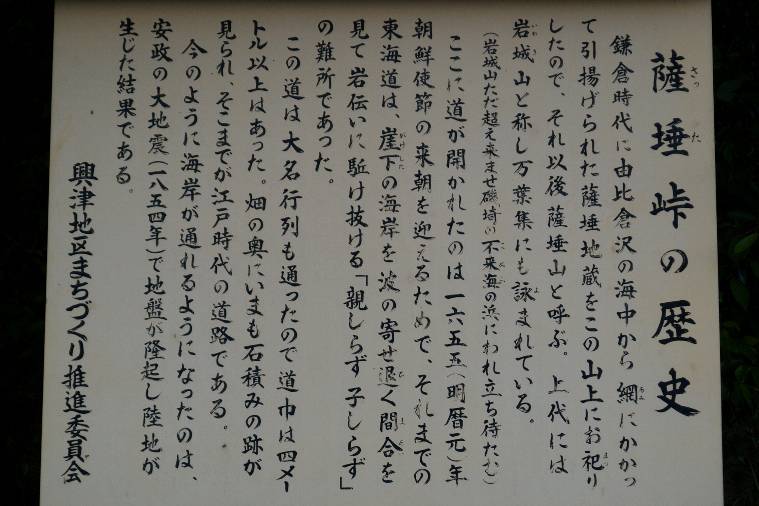 薩埵峠の歴史
鎌倉時代に由比倉沢の海中から網にかかっ
て引揚げられた薩埵地蔵をこの山上にお祀り
したので、それ以後薩埵山と呼ぶ。上代には
岩城山と称し万葉集にも詠まれている。
(岩城山ただ超え来ませ磯埼の不来海の浜にわれ立ち待たむ)
ここに道が開かれたのは一六五五(明暦元)年
朝鮮使節の来朝を迎えるためで、それまでの
東海道は、崖下の海岸を波の寄せ退く間合を
見て岩伝いに駈け抜ける「親しらず子しらず」
の難所であった。
この道は大名行列も通ったので道巾は四メー
トル以上はあった。畑の奥にいまも石積みの跡が
見られ、そこまでが江戸時代の道路である。
今のように海岸が通れるようになったのは、
安政の大地震(一八五四年)で地盤が隆起し陸地が
生じた結果である。
興津地区まちづくり推進委員会